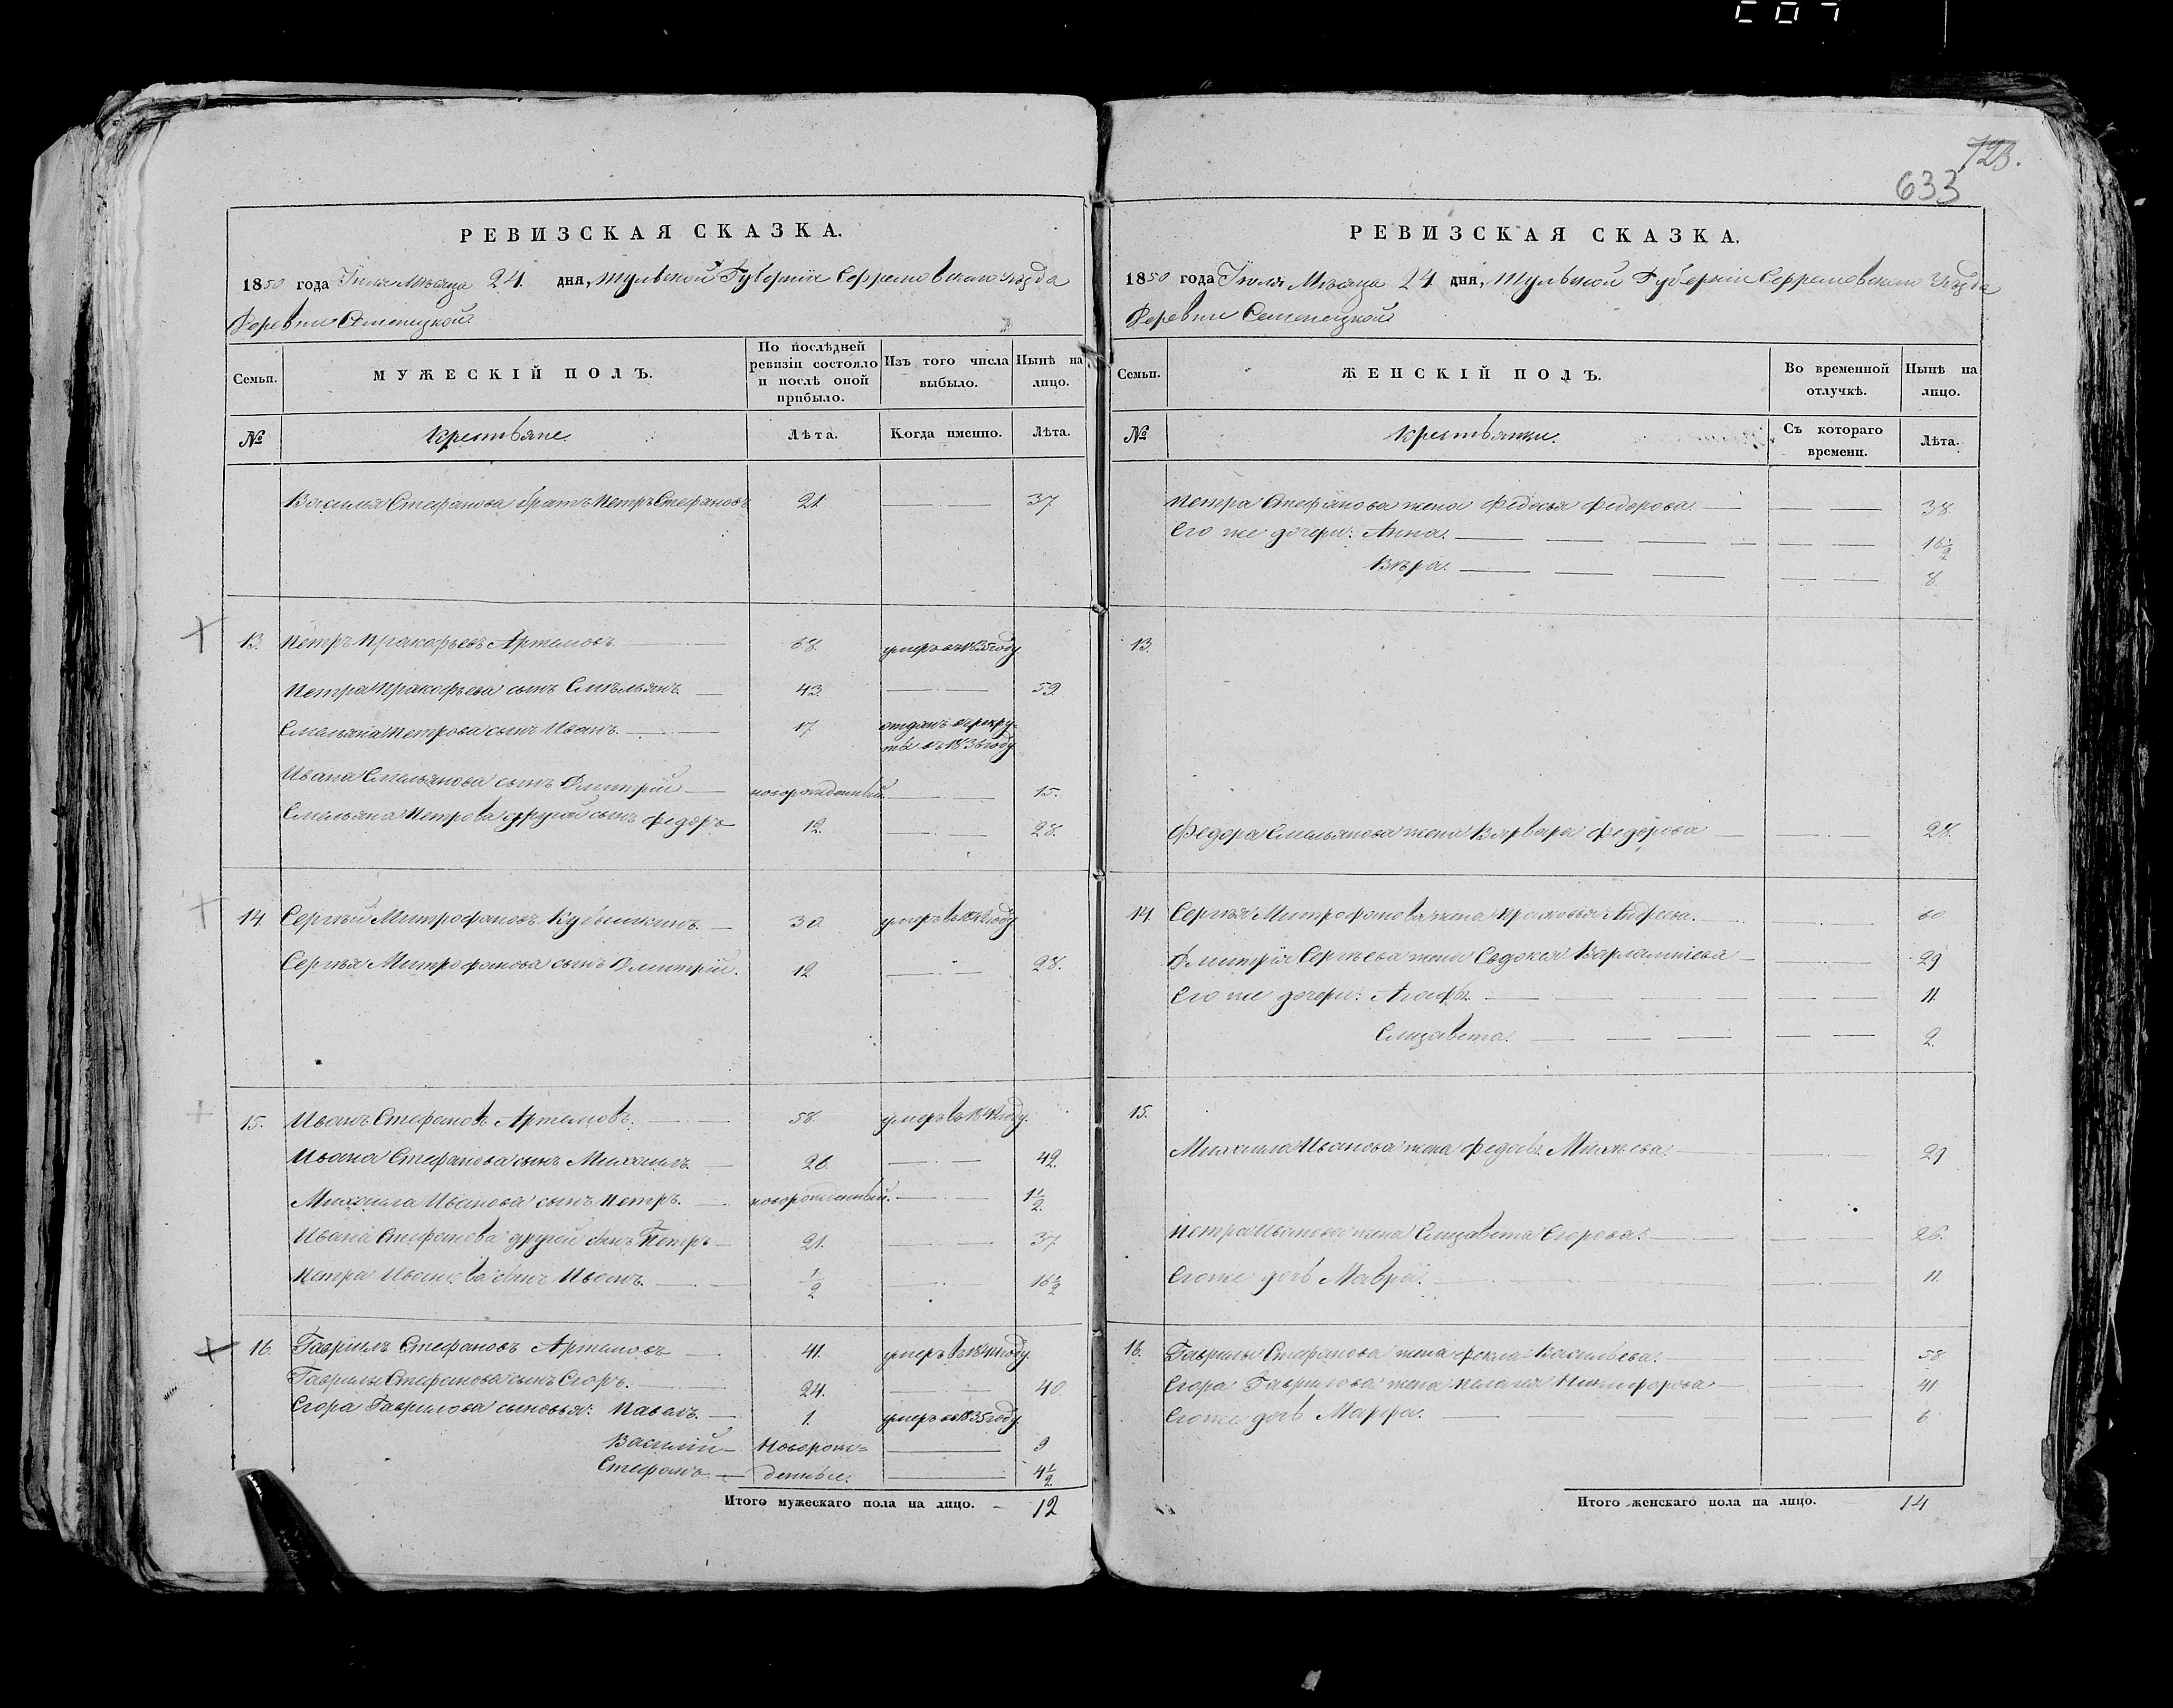 723.
633
РЕВИЗСКАЯ СКАЗКА.
1850 года Іюля Мѣсяца 24 дня, Тульской Губерніи Ефремовскаго Уѣзда
Деревни Семенецкой
Семьи.
МУЖЕСКІЙ ПОЛЪ.
По послѣдней ревизіи состояло и послѣ оной прибыло.
Изъ того числа выбыло.
Нынѣ на лицо.
№
Крестьяне.
Лѣта.
Когда именно.
Лѣта.
Василья Стефанова братъ Петръ Стефановъ 21 37
13. Петръ Пракофьевъ Артемовъ 68. умеръ въ 1835 году
Петра Пракофьева сынъ Емельянъ 43. 59.
Емельяна Петрова сынъ Иванъ. 17 отданъ в рекру-
ты въ 1836 году
Ивана Емельянова сынъ Дмитрій новорожденный. 15.
Емельяна Петрова другой сынъ Федоръ 12. 28.
14. Сергѣй Митрофановъ 30. умеръ в году
Сергѣя Митрофанова сынъ Дмитрій. 12 28.
15. Иванъ Стефановъ Артемовъ. 58. умеръ въ году.
Ивана Стефанова сынъ Михаилъ. 26. 42.
Михаила Иванова сынъ Петръ. новорожденный. 1 1/2
Ивана Стефанова другой сынъ Петръ 21. 37
Петра Иванова сынъ Иванъ. 1/2 16 1/2
16. Гаврилъ Стефановъ Артемовъ 41. умеръ въ году.
Гаврилы Стефанова сынъ Егоръ. 24. 40
Егора Гаврилова сыновья: Павелъ. 1. умеръ въ 1835 году
Василій Новорож= 9
Стефанъ. денные. 4 1/2
Итого мужескаго пола на лицо. 12
РЕВИЗСКАЯ СКАЗКА.
1850 года Іюля Мѣсяца 24 дня, Тульской Губерніи Ефремовскаго Уѣзда
Деревни Семенецкой
Семьи.
ЖЕНСКІЙ ПОЛЪ.
Во временной отлучкѣ.
Нынѣ на лицо.
№
Крестьянки.
Съ котораго времени.
Лѣта.
Петра Стефанова жена Федосья Федорова. 38.
Его же дочери: Анна. 16 1/2
Вѣра. 8.
13.
Федора Емельянова жена Варвара Федорова 28.
14. Сергѣя Митрофанова жена Прасковья Андреева. 60
Дмитрія Сергѣева жена Евдокея 29
Его же дочери: 11.
Елизавета. 2.
15.
Михаила Иванова жена 29
Петра Иванова жена Елизавета Егорова. 26.
Его же дочь Мавра. 11
16. Гаврилы Стефанова жена Фекла Васильева. 58
Егора Гаврилова жена Пелагея Никифорова 41
Его же дочь Марфа. 6
Итого женскаго пола на лицо. 14